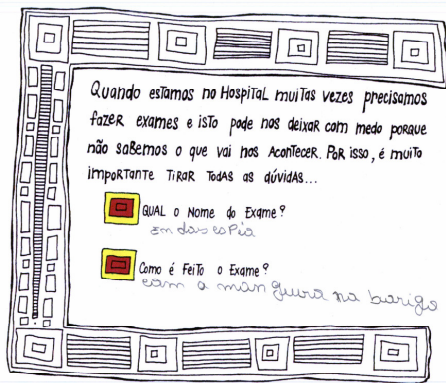 Quando estamos no Hospital muitas vezes precisamos
fazer exames e isto pode nos deixar com medo porque
não sabemos o que vai nos acontecer. Por isso, é muito
importante tirar todas as dúvidas...
Qual o nome do Exame?
Endoscopia
Como é feito o Exame?
com a manguera na bariga